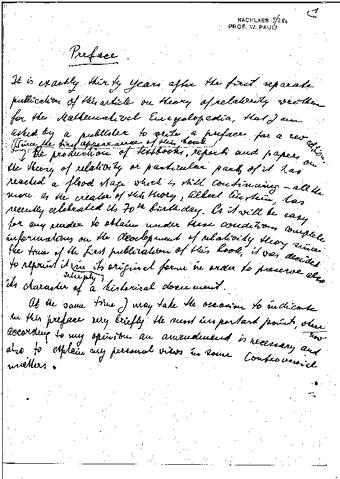 NACHLASS 7/286
PROF. W. PAULI
Preface.
It is exactly thirty years after the first separate
publication of this article on theory of relativity written
for the Mathematical Encyclopedia, that I am
asked by a publisher to write a preface for a new edition.
Since the first appearance of this book
the production of textbooks, reports and papers on
the theory of relativity or particular parts of it has
reached a flood stage which is still continuing – all the
more as the creator of this theory, Albert Einstein, has
recently celebrated its 70th birthday. As it will be easy
for any reader to obtain under these conditions complete
informations on the development of relativity theory since
the time of the first publication of this book, it was decided
to reprint it simply in its original forme in order to preserve also
its character of a historical document.
At the same time I may take the occasion to indicate
in this preface very briefly the most important points, where now
according to my opinion an amendment is necessary and
also to explain my personal views in some controversial
matters.